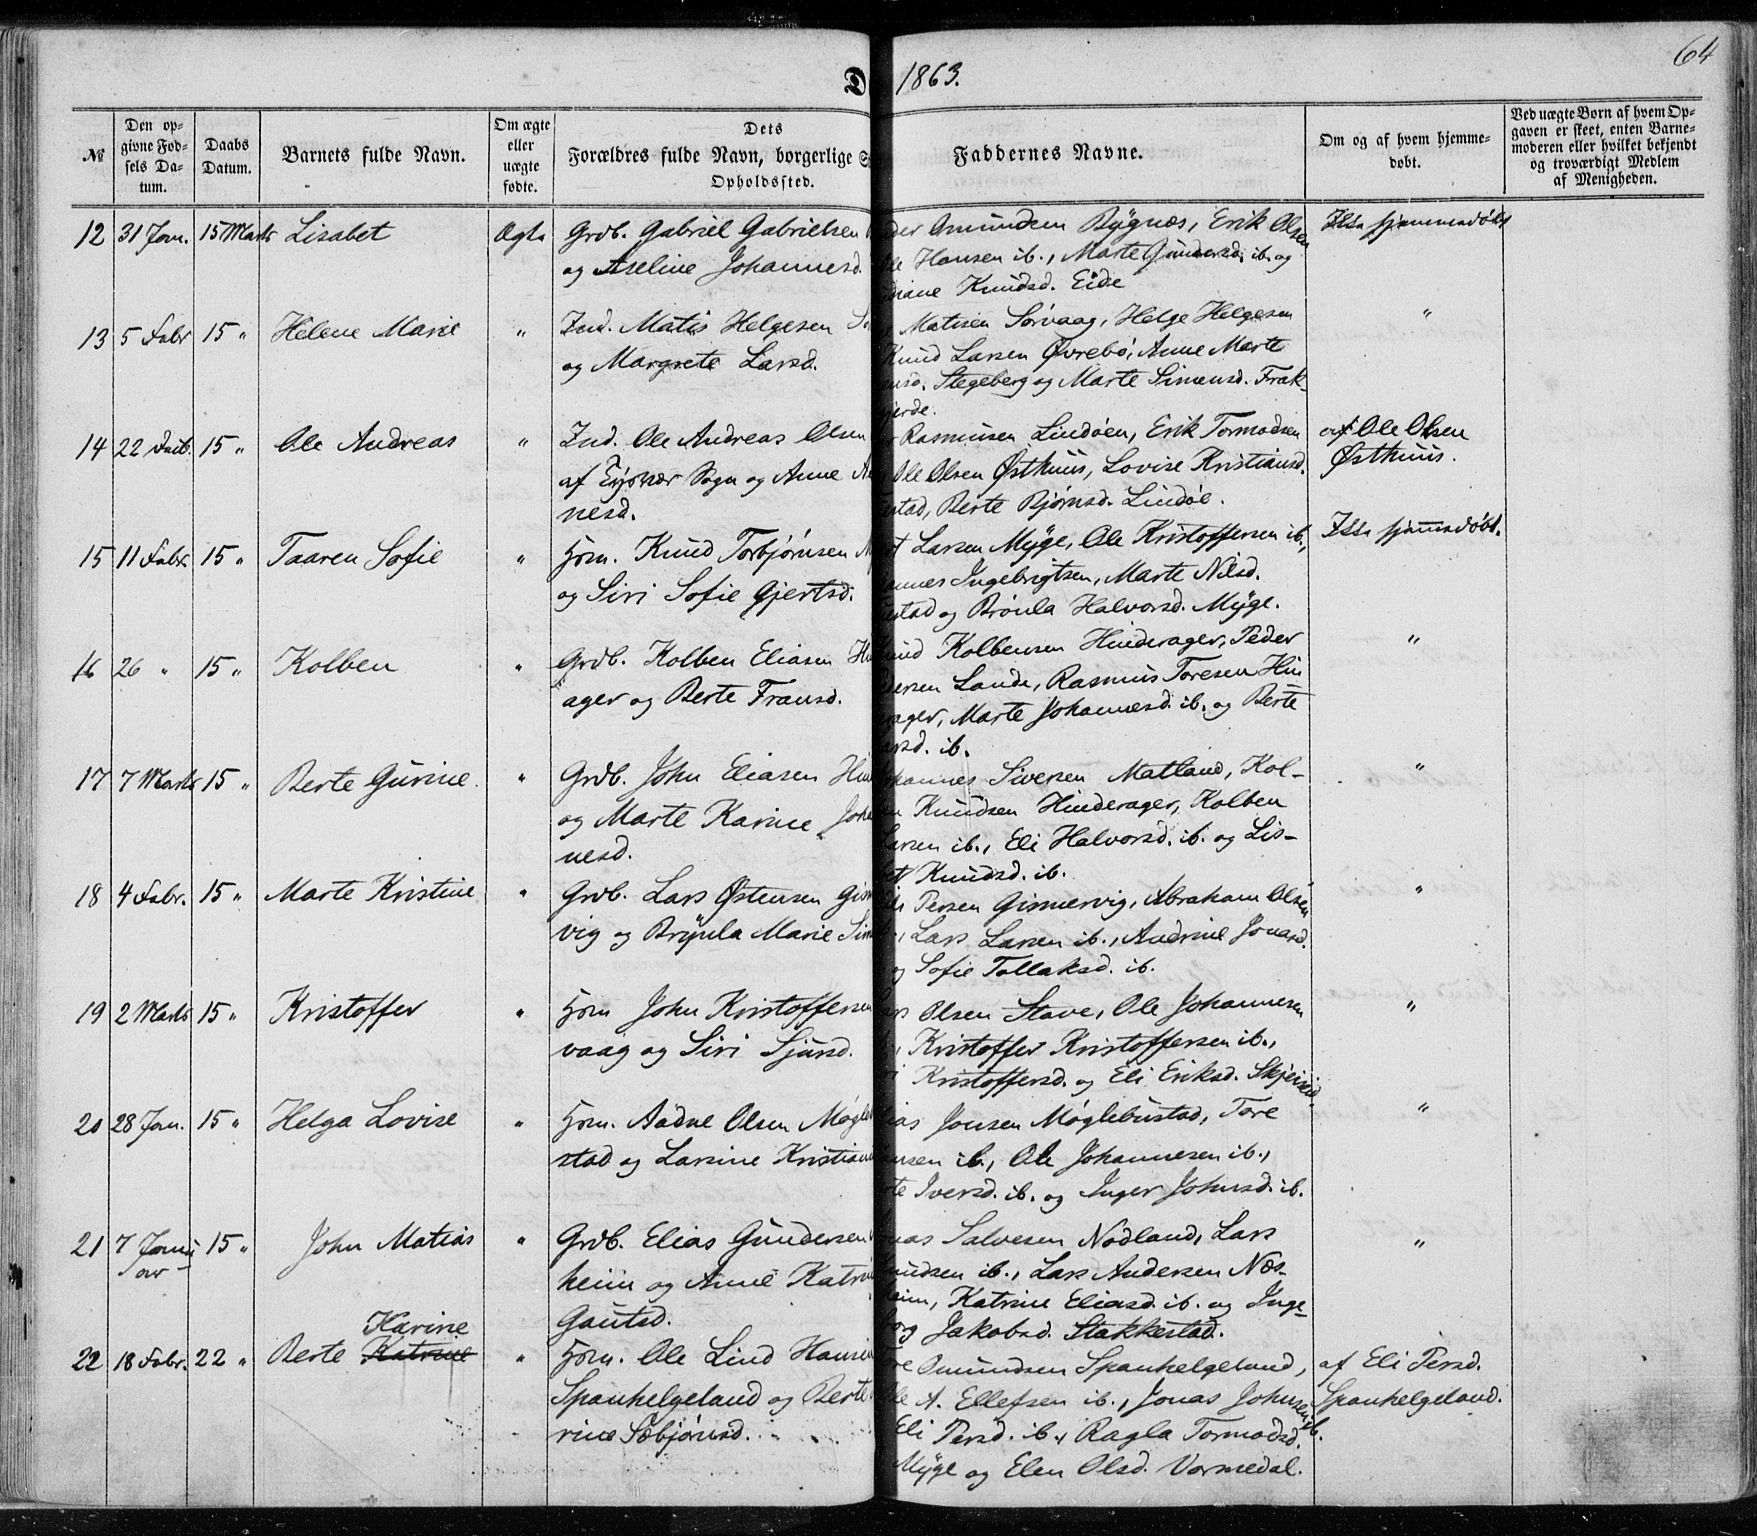 64
D 1863.
№
Den op-
givne Fød-
sels Da-
tum.
Daabs
Datum.
Barnets fulde Navn.
Om ægte
eller
uægte
fødte.
Dets
Forældres fulde Navn, borgerlige
Opholdssted.
Faddernes Navne.
Om og af hvem hjemme-
døbt.
Ved uægte Børn af hvem Op-
gaven er skeet, enten Barne-
moderen eller hvilket bekjendt
og troværdigt Medlem
af Menigheden.
12 31 Jan. 15 Marts Lisabet Ægte Grdb. Gabriel Gabrielsen
og Aseline Johannesd.
der Amundsen Bygnæs, Erik Olsen
Ole Hansen ib., Marte Gundersd. ib. og
diane Knudsd. Eide
Ikke hjemmedøbt
13 5 Febr 15 " Helene Marie " Ind. Matis Helgesen
og Margrete Larsd.
Matisen Sørvaag, Helge Helgesen
Knud Larsen Øvrebø, Anne Marte
ensd. Stegeberg og Marte Simensd. Frak-
gjerde.
"
14 22 Febr. 15 " Ole Andreas " Ind. Ole Andreas Olsen
af Tysvær Sogn og Anne
nesd.
Rasmusen Lindøen, Erik Tormodsen
Ole Olsen Østhuus, Lovise Kristiansd.
stad, Berte Bjørnsd. Lindøe.
af Ole Olsen
Østhuus.
15 11 Febr 15 " Taaren Sofie " Hsm. Knud Torbjørnsen
og Siri Sofie Gjertsd.
Larsen Myge, Ole Kristoffersen ib.,
annes Ingebrigtsen, Marte Nilsd.
stad og Brønla Halvorsd. Myge.
Ikke hjemmedøbt.
16 26 " 15 " Kolben " Grdb. Kolben Eliasen
ager og Berte Fransd.
Knud Kolbensen Hinderager, Peder
dersen Lande, Rasmus Toresen Hin
rager, Marte Johannesd. ib. og Berte
arsd. ib.
"
17 7 Marts 15 " Berte Gurine " Grdb. John Eliasen
og Marte Karine Joha
nesd.
ohannes Siversen Matland, Kol-
en Knudsen Hinderager, Kolben
Larsen ib., Eli Halvorsd. ib. og Lis-
bet Knudsd. ib.
"
18 4 Febr. 15 " Marte Kristine " Grdb. Lars Østensen Gis
vig og Brynla Marie Sim
Persen Gismervig, Abraham Olsen
Lars Larsen ib., Andrine Jonasd.
og Sofie Tollaksd. ib.
"
19 2 Marts 15 " Kristoffer " Hsm John Kristoffersen
vaag og Siri Sjursd.
Olsen Stave, Ole Johannesen
Kristoffer Kristoffersen ib.,
Kristoffersd. og Eli Eriksd. Skjeiseid
"
20 28 Jan. 15 " Helga Lovise " Hsm. Aadne Olsen Møgle
stad og Larsine Kristian
ias Jonsen Møglebustad, Tore
ansen ib., Ole Johannesen ib.,
te Iversd. ib. og Inger Johnsd. ib.
"
21 7 Janu
ar 15 " John Matias " Grdb. Elias Gundersen
heim og Anne Katri
Gautsd.
nas Salvesen Nødland, Lars
Knudsen ib., Lars Andersen Næs-
heim, Katrine Eliasd. ib. og Inge-
borg Jakobsd. Stakkestad.
"
22 18 Febr. 22 " Berte Karine
Katrine " Hsm. Ole Lind Hansen
Spanhelgeland og Berte
rine Sæbjørnsd.
Tore Omundsen Spanhelgeland,
Ole A. Ellefsen ib., Jonas Johnsen ib.
Eli Persd. ib., Ragla Tormodsd.
Myge og Elen Olsd. Vormedal.
af Eli Persd.
Spanhelgeland.